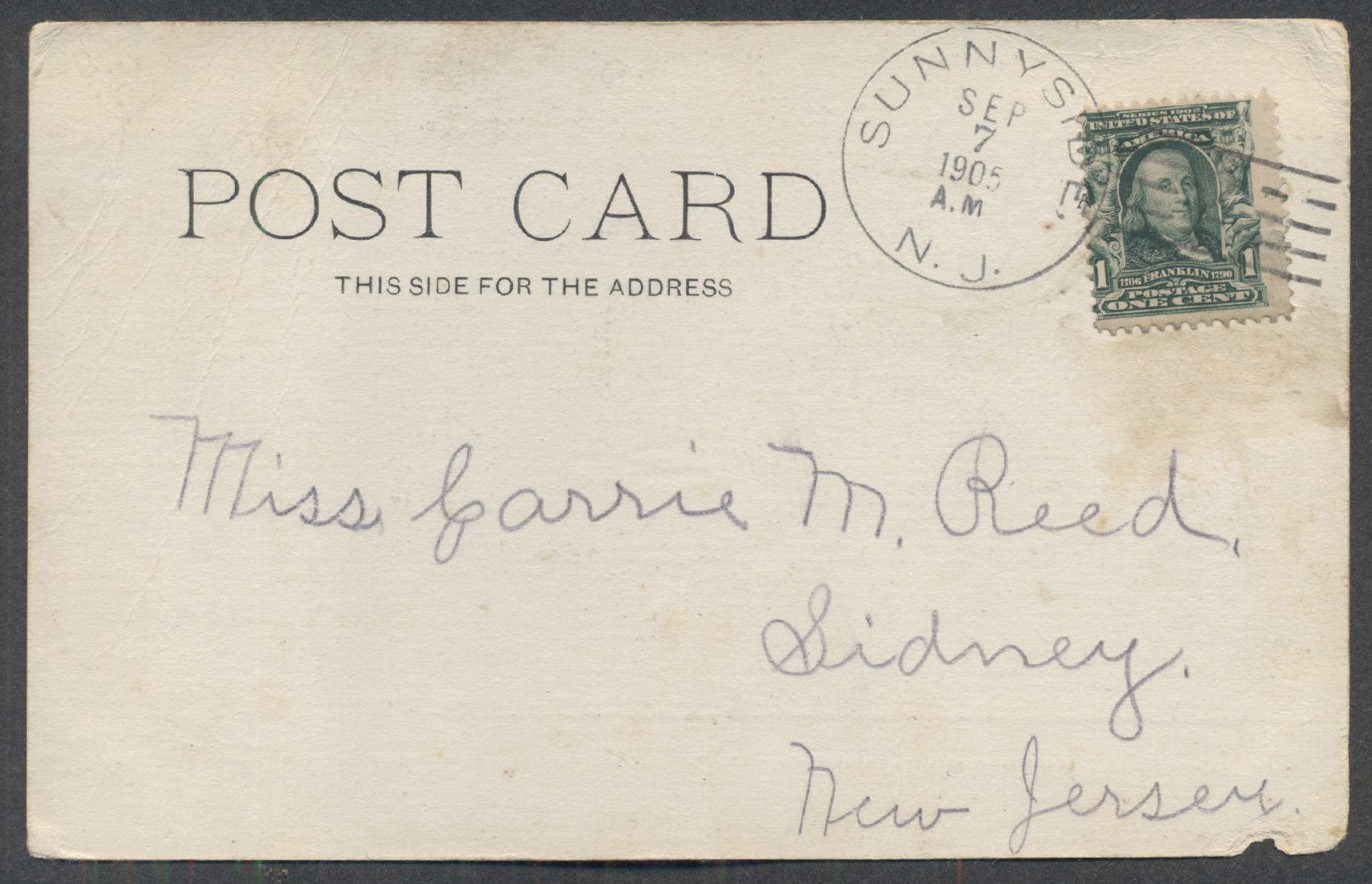 POST CARD
THIS SIDE FOR THE ADDRESS
SUNNYSIDE
SEP
7
1905
A.M
N. J.
SERIES 1902
UNITED STATES OF
AMERICA
1 1706 FRANKLIN 1790 1
POSTAGE
ONE CENT
Miss Carrie M. Reed,
Sidney.
New Jersey.